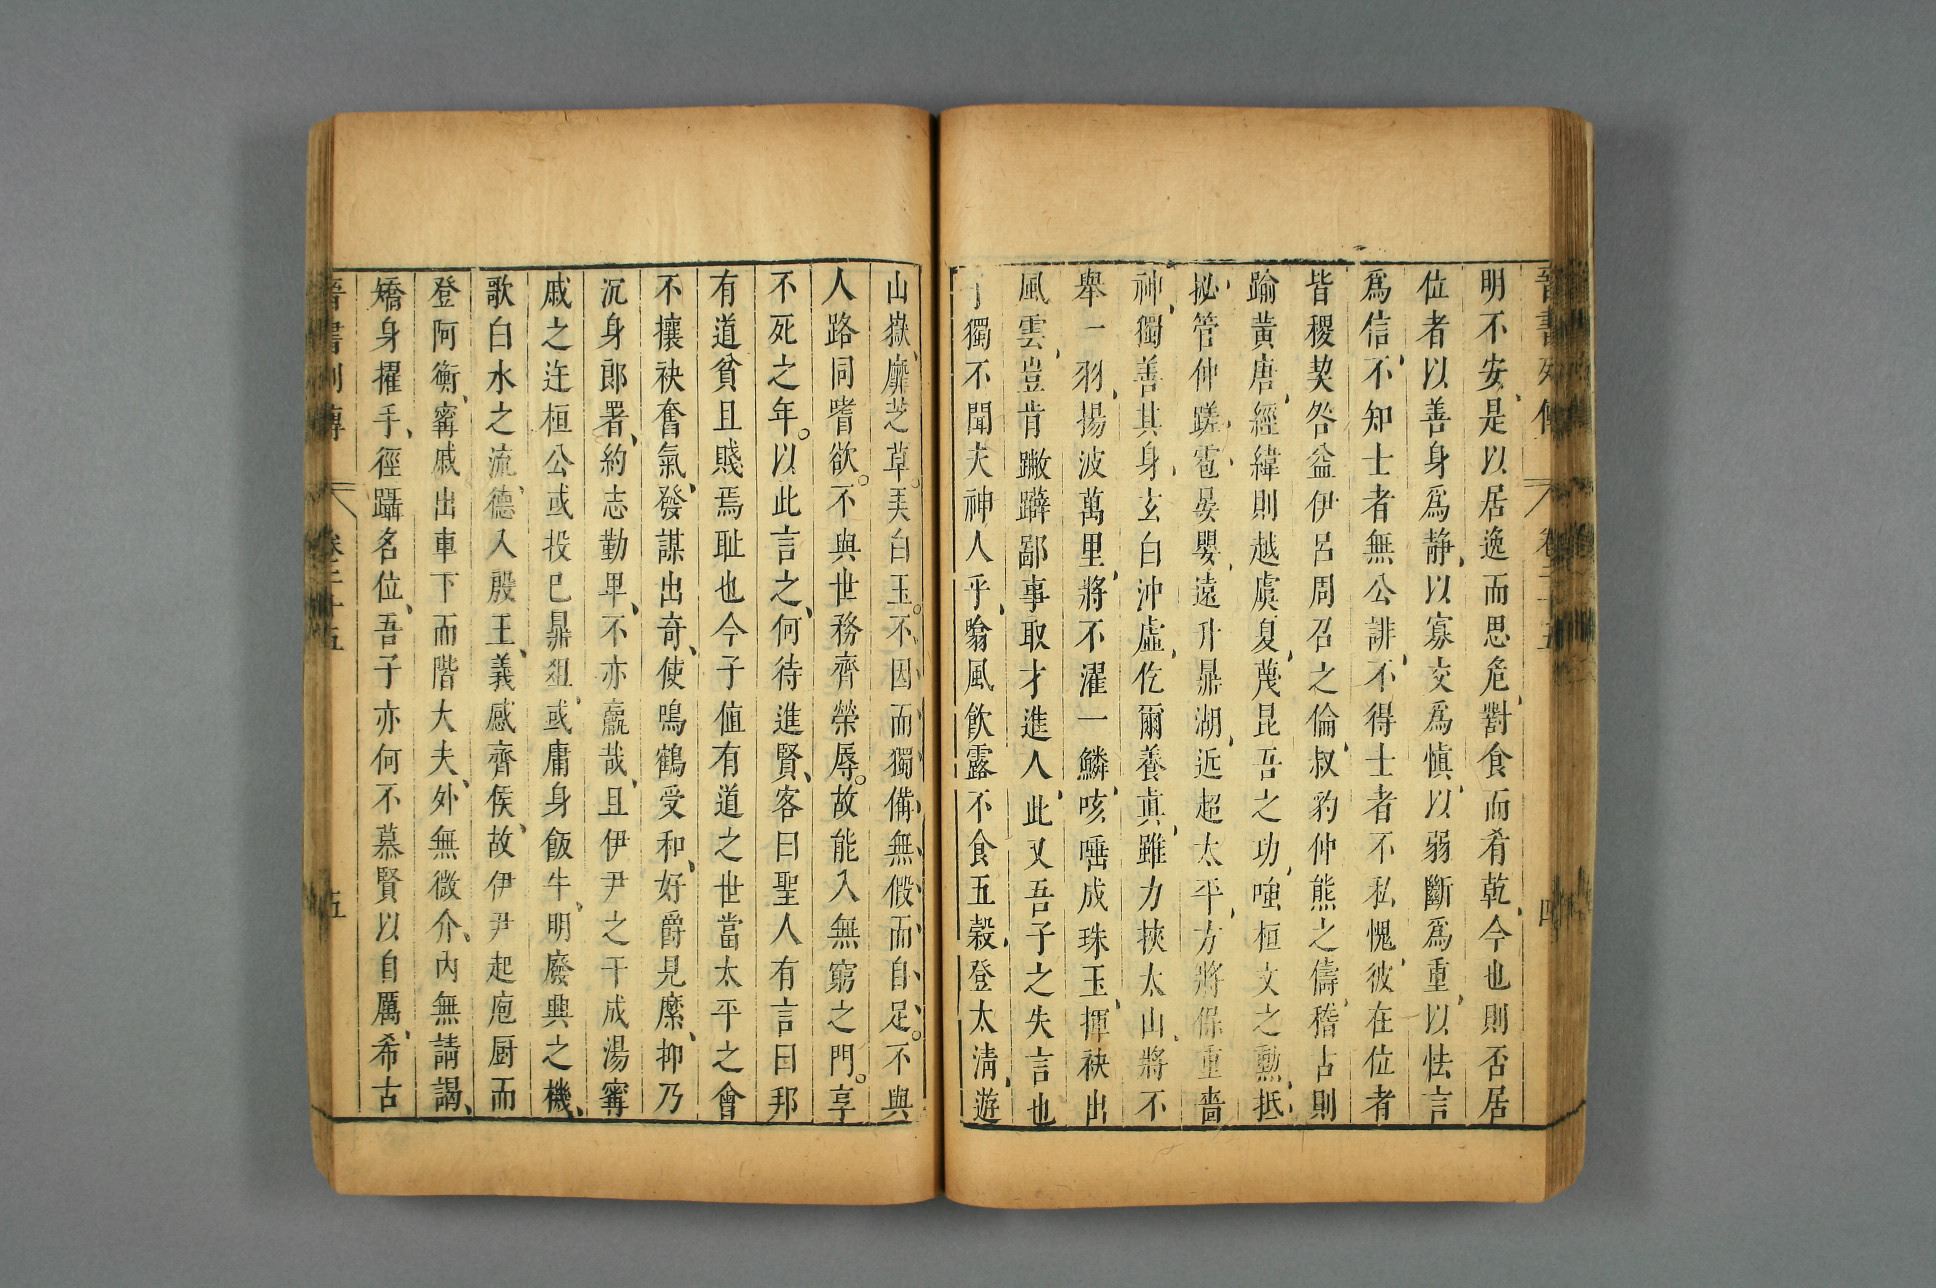 晉書列傳 卷二十五 四
明不安是以居逸而思危對食而肴乾今也則否居
位者以善身爲静以寡交爲慎以弱斷爲重以怯言
爲信不知士者無公誹不得士者不私愧彼在位者
皆稷契咎益伊呂周召之倫叔豹仲熊之儔稽古則
踰黃唐經緯則越虞夏蔑昆吾之功嗤桓文之勲抵
拯管仲蹉雹晏嬰遠升鼎湖近超太平方將保重嗇
神獨善其身玄白沖虛仡爾養真雖力挾太山將不
舉一羽揚波萬里將不濯一鱗咳唾成珠玉揮袂出
風雲豈肯䠥䠥鄙事取才進人此又吾子之失言也
子獨不聞夫神人乎噏風飲露不食五穀登太清遊
山嶽靡芝草弄白玉。不因而獨備無假而自足。不與
人路同嗜欲。不與世務齊榮辱。故能入無窮之門。享
不死之年。以此言之何待進賢客曰聖人有言曰邦
有道貧且賤焉耻也今子値有道之世當太平之會
不攘袂奮氣發謀出奇使鳴鶴受和好爵見縻抑乃
沉身郎署約志勤卑不亦羸哉且伊尹之干成湯甯
戚之迕桓公或投己鼎俎或庸身飯牛明廢興之機
歌白水之流德入殷王義感齊侯故伊尹起庖厨而
登阿衡甯戚出車下而階大夫外無微介內無請謁
矯身擢手徑躡名位吾子亦何不慕賢以自厲希古
晉書列傳 卷二十五 五